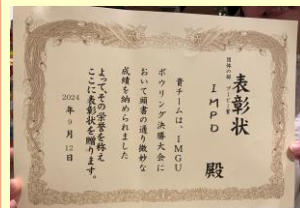 表彰状
団体の部 ブービー賞
IMPD 殿
貴チームは、IMGU
ボウリング決勝大会に
おいて頭書の通り微妙な
成績を納められました
よって、その栄誉を称え
ここに表彰状を贈ります。
2024年9月12日